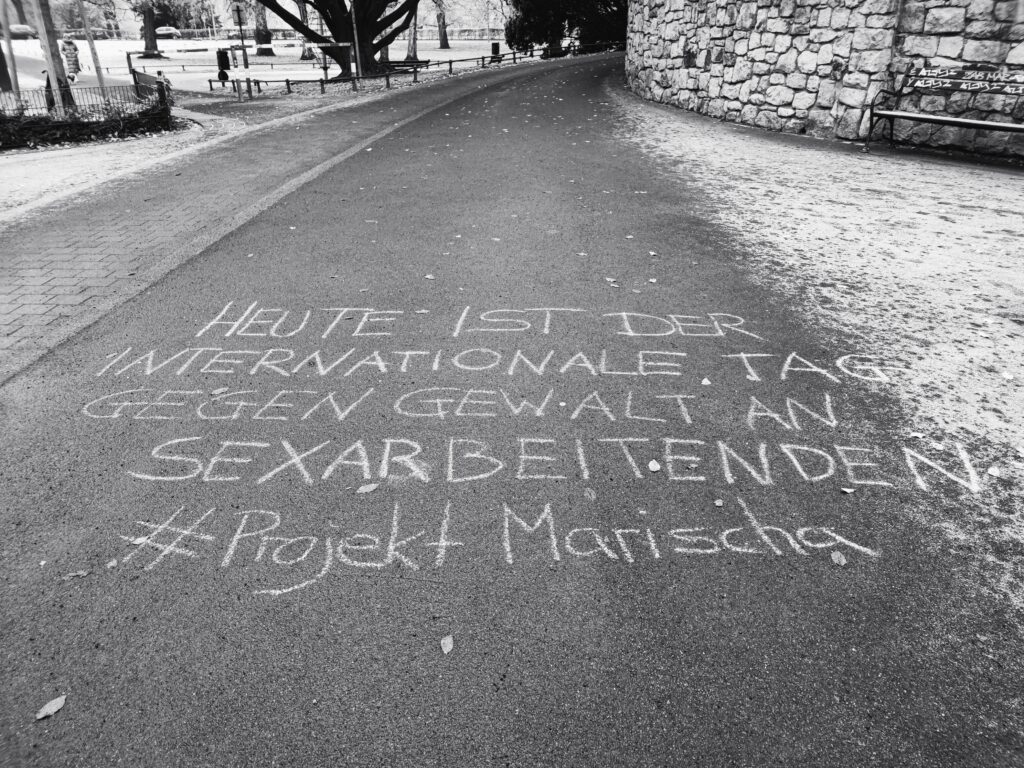 HEUTE IST DER
INTERNATIONALE TAG
GEGEN GEWALT AN
SEXARBEITENDEN
#Projekt Marischa